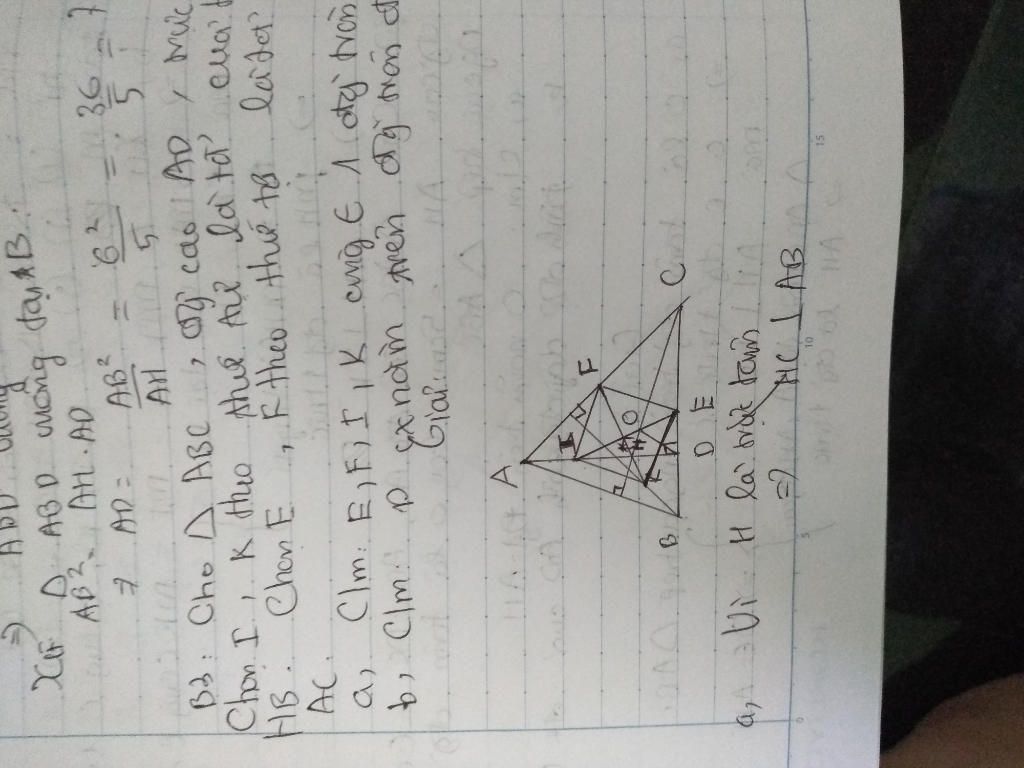 =) ABD vuông
Xét Δ ABD vuông tại B.
AB² = AH. AD
=) AD = AB²/AH = 6²/5 = 36/5 = 7
B3: Cho Δ ABC, đg cao AD, trực
Chọn I, K theo thứ tự là tđ của
HB. Chọn E, F theo thứ tự là tđ
AC.
a, C/m: E, F, I, K cùng ∈ 1 đg tròn
b, C/m: D nằm trên đg tròn đ
Giải
A
I
F
O
H
K
B
D E
C
a, Vì H là trực tâm
=) HC ⊥ AB
15
10
5
0